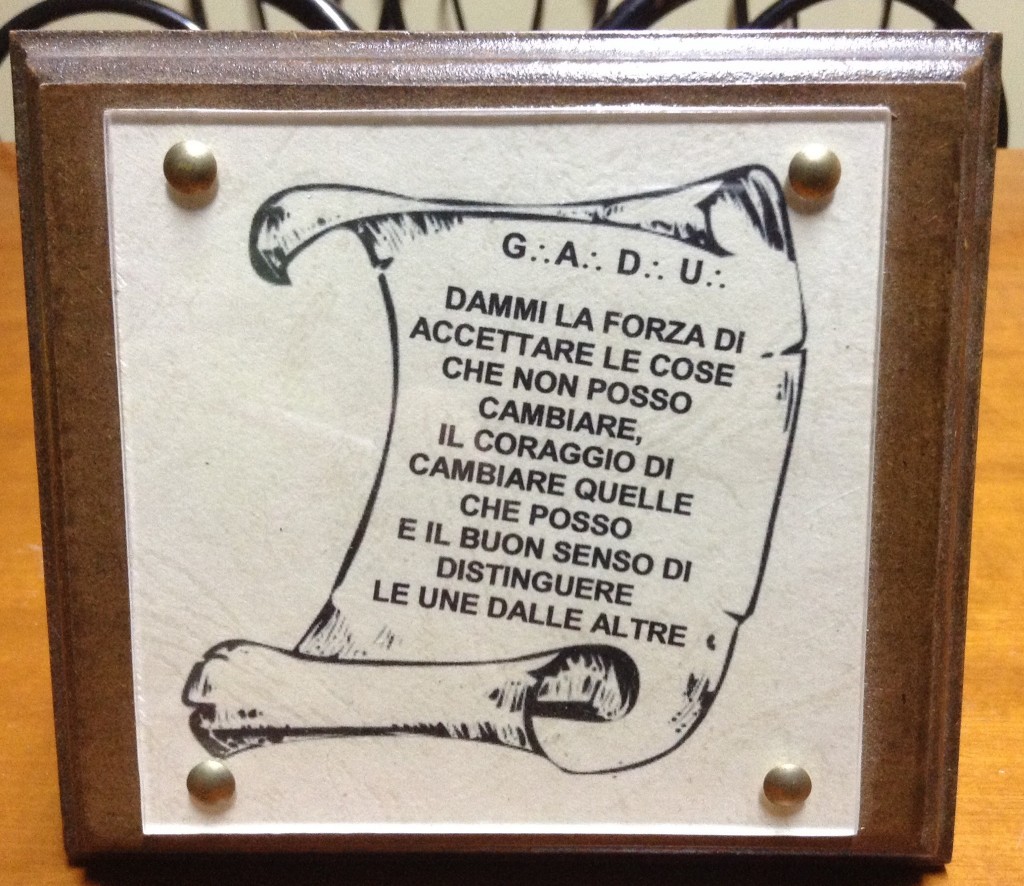 G.∴A.∴ D.∴ U.∴
DAMMI LA FORZA DI
ACCETTARE LE COSE
CHE NON POSSO
CAMBIARE,
IL CORAGGIO DI
CAMBIARE QUELLE
CHE POSSO
E IL BUON SENSO DI
DISTINGUERE
LE UNE DALLE ALTRE